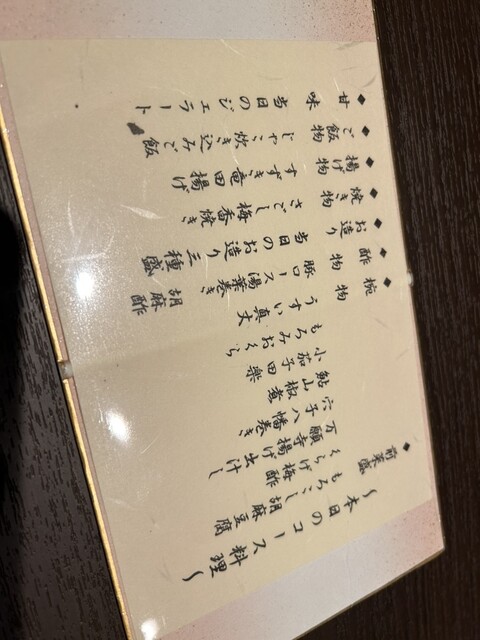 〜本日のコース料理〜
◆前菜盛
もろこし胡麻豆腐
くらげ梅酢
万願寺揚げ出汁し
穴子八幡巻き
鮎山椒煮
小茄子田楽
もろみおくら
◆椀物 うすい真丈
◆酢物 豚ロース湯葉巻き 胡麻酢
◆お造り 当日のお造り三種盛
◆焼き物 さごし梅香焼き
◆揚げ物 すずき竜田揚げ
◆ご飯物 じゃこ炊き込みご飯
◆甘味 当日のジェラート